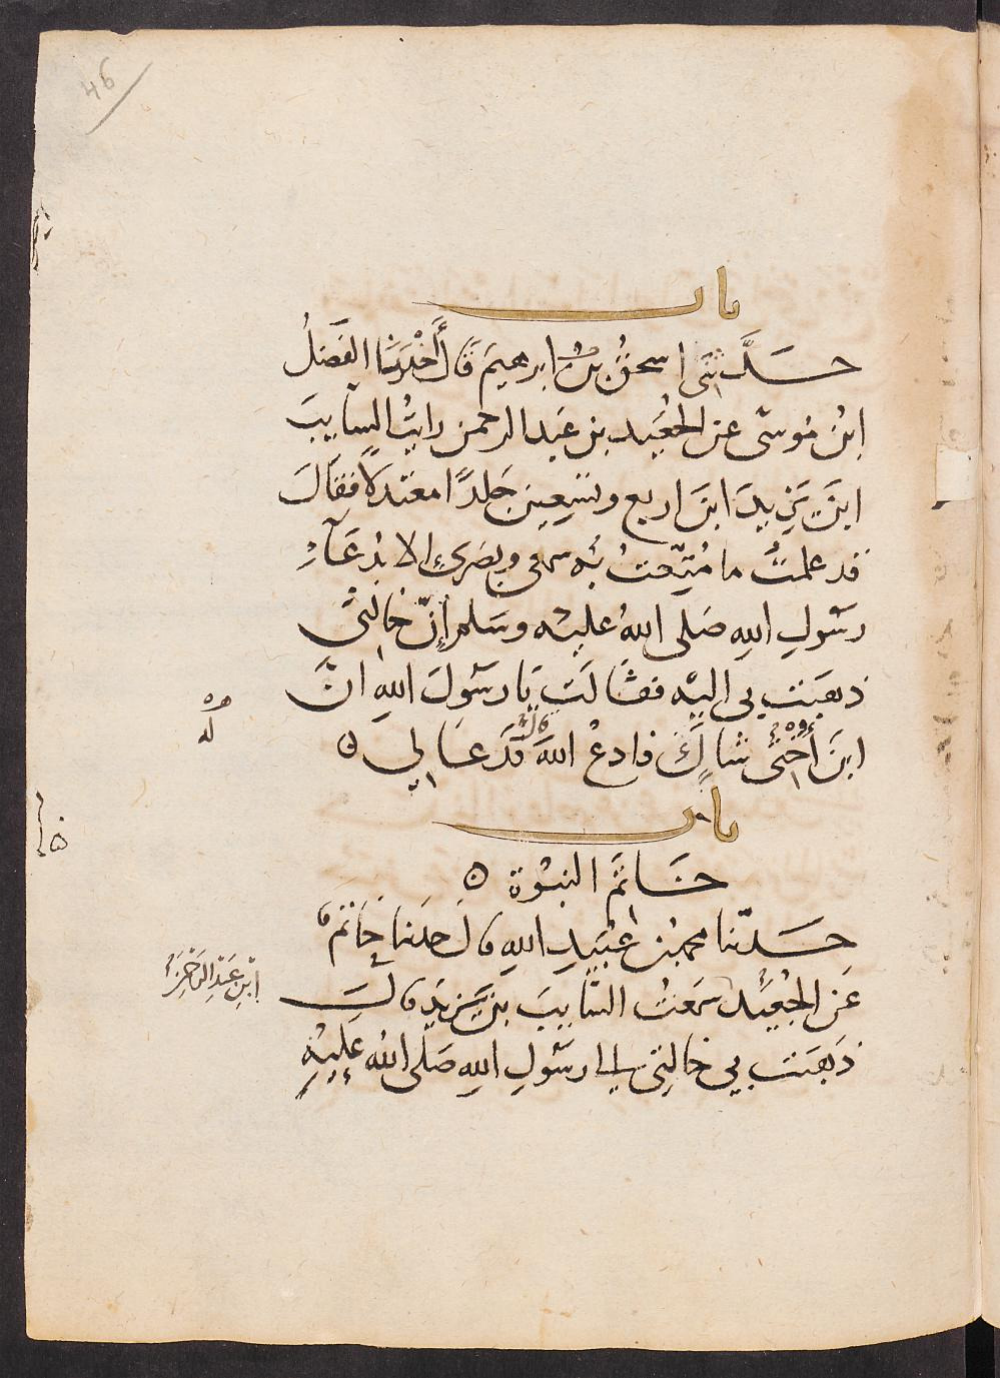 46
باب
حدثني اسحق بن ابرهيم قال أخبرنا الفضل
ابن موسى عن الجعيد بن عبد الرحمن رايت السايب
ابن يزيد ابن اربع وتسعين جلدًا معتدلا فقال
قد علمت ما متعت به سمعي وبصري الا بدعاء
رسول الله صلى الله عليه وسلم إن خالتي
ذهبت بي اليه فقالت يا رسول الله ان
ابن أختي شاك فادع الله قال فدعا لي ه
له
باب
خاتم النبوة ه
حدثنا محمد بن عبيد الله قال حدثنا حاتم
عن الجعيد سمعت السايب بن يزيد قال
ابن عبد الرحمن
ذهبت بي خالتي الى رسول الله صلى الله عليه